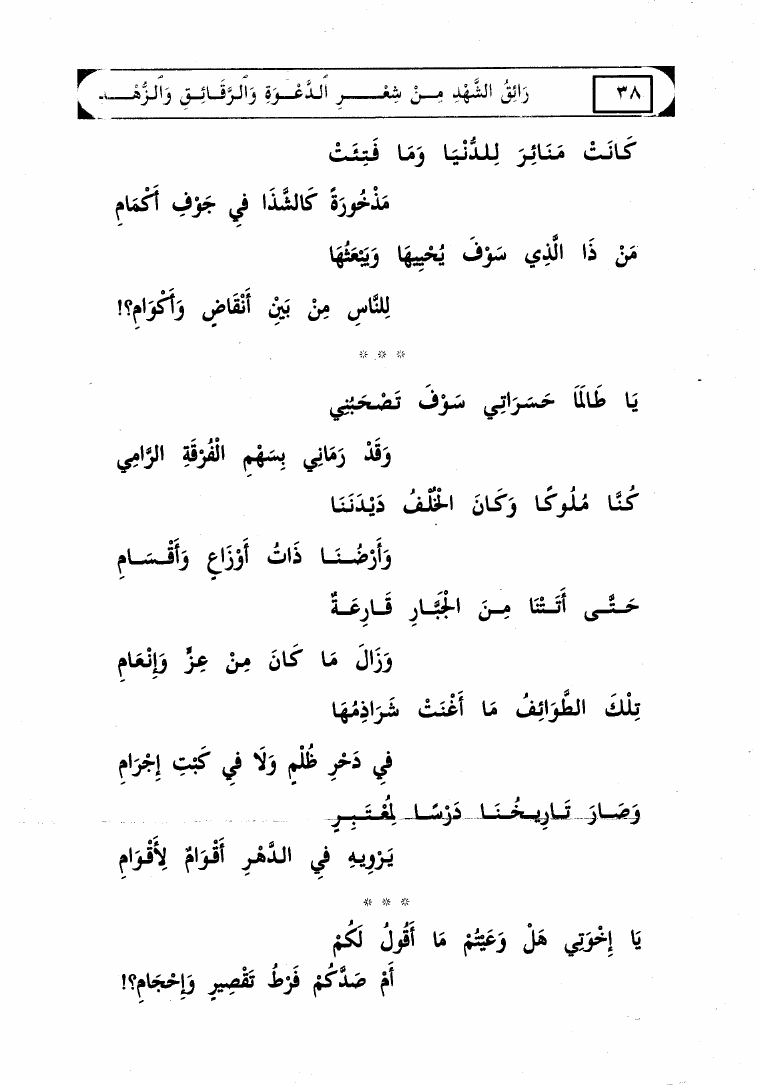 ٣٨
رَائِقُ الشَّهْدِ مِـنْ شِعْـــرِ الدَّعْـوَةِ وَالرَّقَـائِـقِ وَالزُّهْـــدِ
كَانَتْ مَنَائِرَ لِلدُّنْيَا وَمَا فَتِئَتْ
مَذْخُورَةً كَالشَّذَا فِي جَوْفِ أَكْمَامِ
مَنْ ذَا الَّذِي سَوْفَ يُحْيِيهَا وَيَبْعَثُهَا
لِلنَّاسِ مِنْ بَيْنِ أَنْقَاضٍ وَأَكْوَامِ؟!
* * *
يَا طَالَمَا حَسَرَاتِي سَوْفَ تَصْحَبُنِي
وَقَدْ رَمَانِي بِسَهْمِ الْفُرْقَةِ الرَّامِي
كُنَّا مُلُوكًا وَكَانَ الْخُلْفُ دَيْدَنَنَا
وَأَرْضُـنَـا ذَاتُ أَوْزَاعٍ وَأَقْـسَـامِ
حَـتَّـى أَتَـتْنَا مِـنَ الْجَبَّـارِ قَـارِعَـةٌ
وَزَالَ مَا كَانَ مِنْ عِزٍّ وَإِنْعَامِ
تِلْكَ الطَّوَائِفُ مَا أَغْنَتْ شَرَاذِمُهَا
فِي دَحْرِ ظُلْمٍ وَلَا فِي كَبْتِ إِجْرَامِ
وَصَـارَ تَـارِيـخُـنَـا دَرْسًـا لِمُعْـتَـبِـرٍ
يَـرْوِيـهِ فِي الدَّهْرِ أَقْوَامٌ لِأَقْوَامِ
* * *
يَا إِخْوَتِي هَلْ وَعَيْتُمْ مَا أَقُولُ لَكُمْ
أَمْ صَدَّكُمْ فَرْطُ تَقْصِيرٍ وَإِحْجَامِ؟!